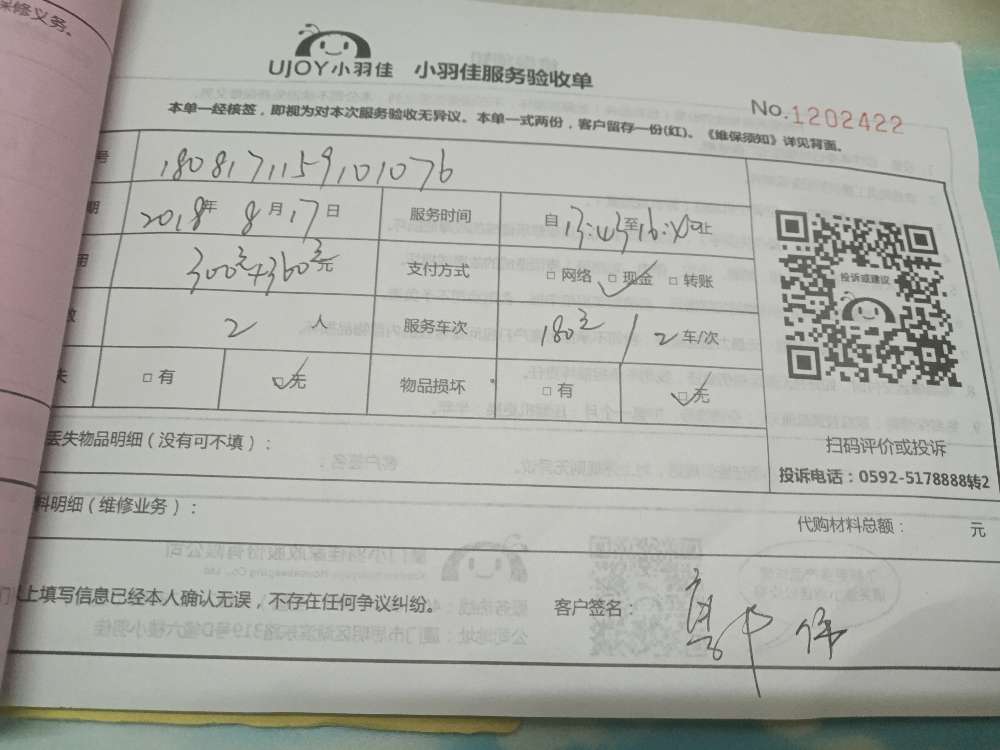 保修义务。
UJOY小羽佳 小羽佳服务验收单
No.1202422
本单一经核签，即视为对本次服务验收无异议。本单一式两份，客户留存一份(红)。《维保须知》详见背面。
号 1808171159101076
期 2018年 8月17日 服务时间 自13:43至16:40止
用 300元+360元元 支付方式 □网络 □现金 □转账
数 2 人 服务车次 180元/2车/次
失 □有 □无 物品损坏 □有 □无
投诉或建议
扫码评价或投诉
投诉电话：0592-5178888转2
丢失物品明细（没有可不填）：
料明细（维修业务）： 代购材料总额： 元
上填写信息已经本人确认无误，不存在任何争议纠纷。 客户签名：